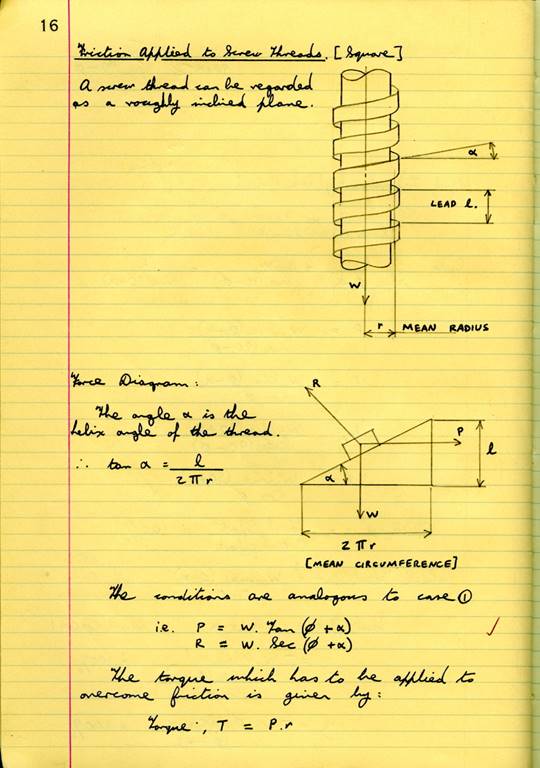 16
Friction Applied to Screw Threads. [Square]
A screw thread can be regarded
as a roughly inclined plane.
α
LEAD l.
W
r MEAN RADIUS
Force Diagram:
R
The angle α is the
helix angle of the thread.
P
l
∴ tan α = l / 2πr
α
W
2πr
[MEAN CIRCUMFERENCE]
The conditions are analogous to case ①
i.e. P = W. Tan (φ + α)
R = W. Sec (φ + α)
The torque which has to be applied to
overcome friction is given by:
Torque, T = P.r